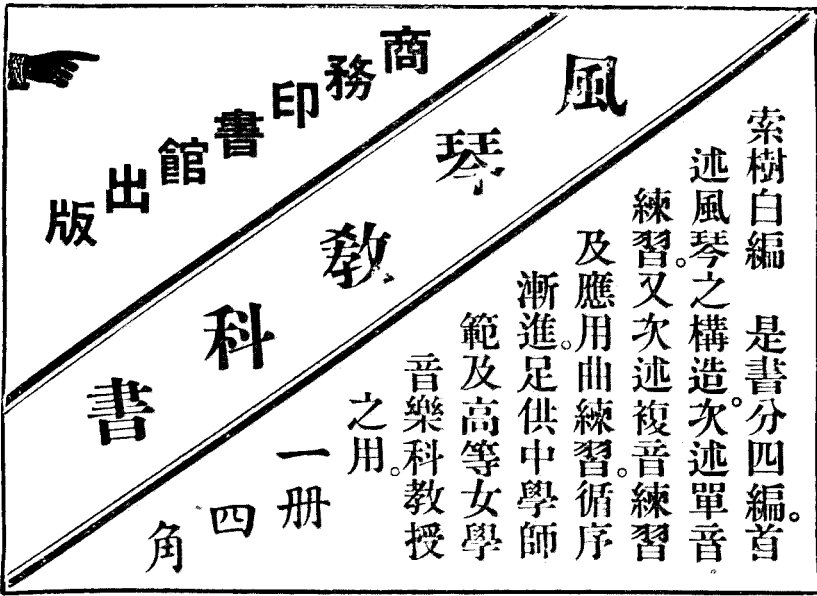 商務印書館出版
風琴教科書
索樹白編　是書分四編。首
述風琴之構造。次述單音。
練習。又次述複音練習
及應用曲練習。循序
漸進。足供中學師
範及高等女學
音樂科教授
之用。
一册
四
角